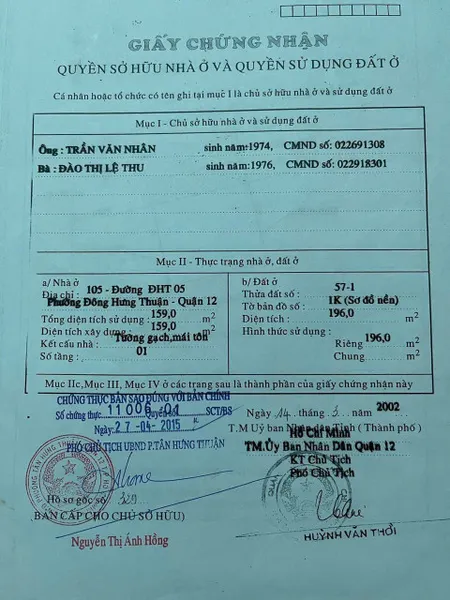 GIẤY CHỨNG NHẬN
QUYỀN SỞ HỮU NHÀ Ở VÀ QUYỀN SỬ DỤNG ĐẤT Ở
Cá nhân hoặc tổ chức có tên ghi tại mục I là chủ sở hữu nhà ở và sử dụng đất ở
Mục I - Chủ sở hữu nhà ở và sử dụng đất ở
Ông : TRẦN VĂN NHÂN sinh năm:1974, CMND số: 022691308
Bà : ĐÀO THỊ LỆ THU sinh năm:1976, CMND số: 022918301
Mục II - Thực trạng nhà ở, đất ở
a/ Nhà ở
Địa chỉ : 105 - Đường ĐHT 05
Phường Đông Hưng Thuận - Quận 12
Tổng diện tích sử dụng : 159,0 m2
Diện tích xây dựng : 159,0 m2
Kết cấu nhà : Tường gạch,mái tôn
Số tầng : 01
b/ Đất ở
Thửa đất số : 57-1
Tờ bản đồ số : 1K (Sơ đồ nền)
Diện tích : 196,0 m2
Hình thức sử dụng :
Riêng 196,0 m2
Chung m2
Mục IIc,Mục III, Mục IV ở các trang sau là thành phần của giấy chứng nhận này
CHỨNG THỰC BẢN SAO ĐÚNG VỚI BẢN CHÍNH
Số chứng thực 11006 Quyển số 01 SCT/BS
Ngày: 27-04-2015
PHÓ CHỦ TỊCH UBND P.TÂN HƯNG THUẬN
Hồ sơ gốc số 320
BẢN CẤP CHO CHỦ SỞ HỮU)
Nguyễn Thị Ánh Hồng
Ngày 14 tháng 3 năm 2002
T.M Uỷ ban Nhân dân Tỉnh (Thành phố)
Hồ Chí Minh
TM.Ủy Ban Nhân Dân Quận 12
KT Chủ Tịch
Phó Chủ Tịch
HUỲNH VĂN THỚI